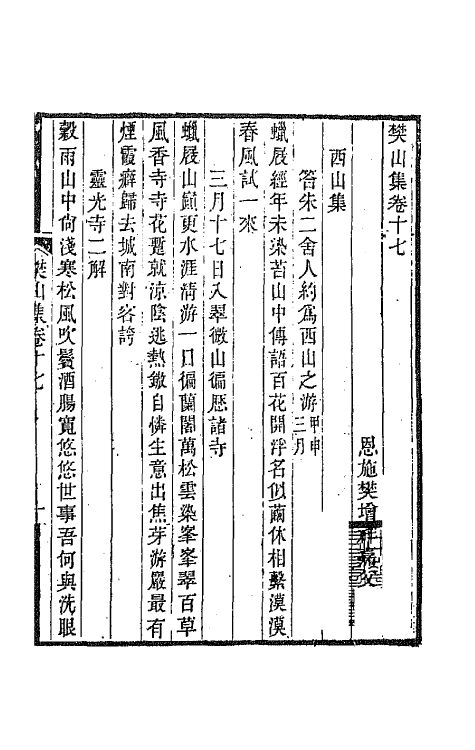 樊山集卷十七
恩施樊增祥嘉父
西山集
答朱二舍人約爲西山之游甲申三月
蠟屐經年未染苔山中傳語百花開浮名似繭休相繫漠漠
春風試一來
三月十七日入翠微山徧歷諸寺
蠟屐山巔更水涯淸游一日徧蘭闍萬松雲染峯峯翠百草
風香寺寺花蹔就涼陰逃熱敵自憐生意出焦芽游嚴最有
煙霞癖歸去城南對客誇
靈光寺二解
穀雨山中尙淺寒松風吹鬢酒腸寬悠悠世事吾何與洗眼
樊山集卷十七
一